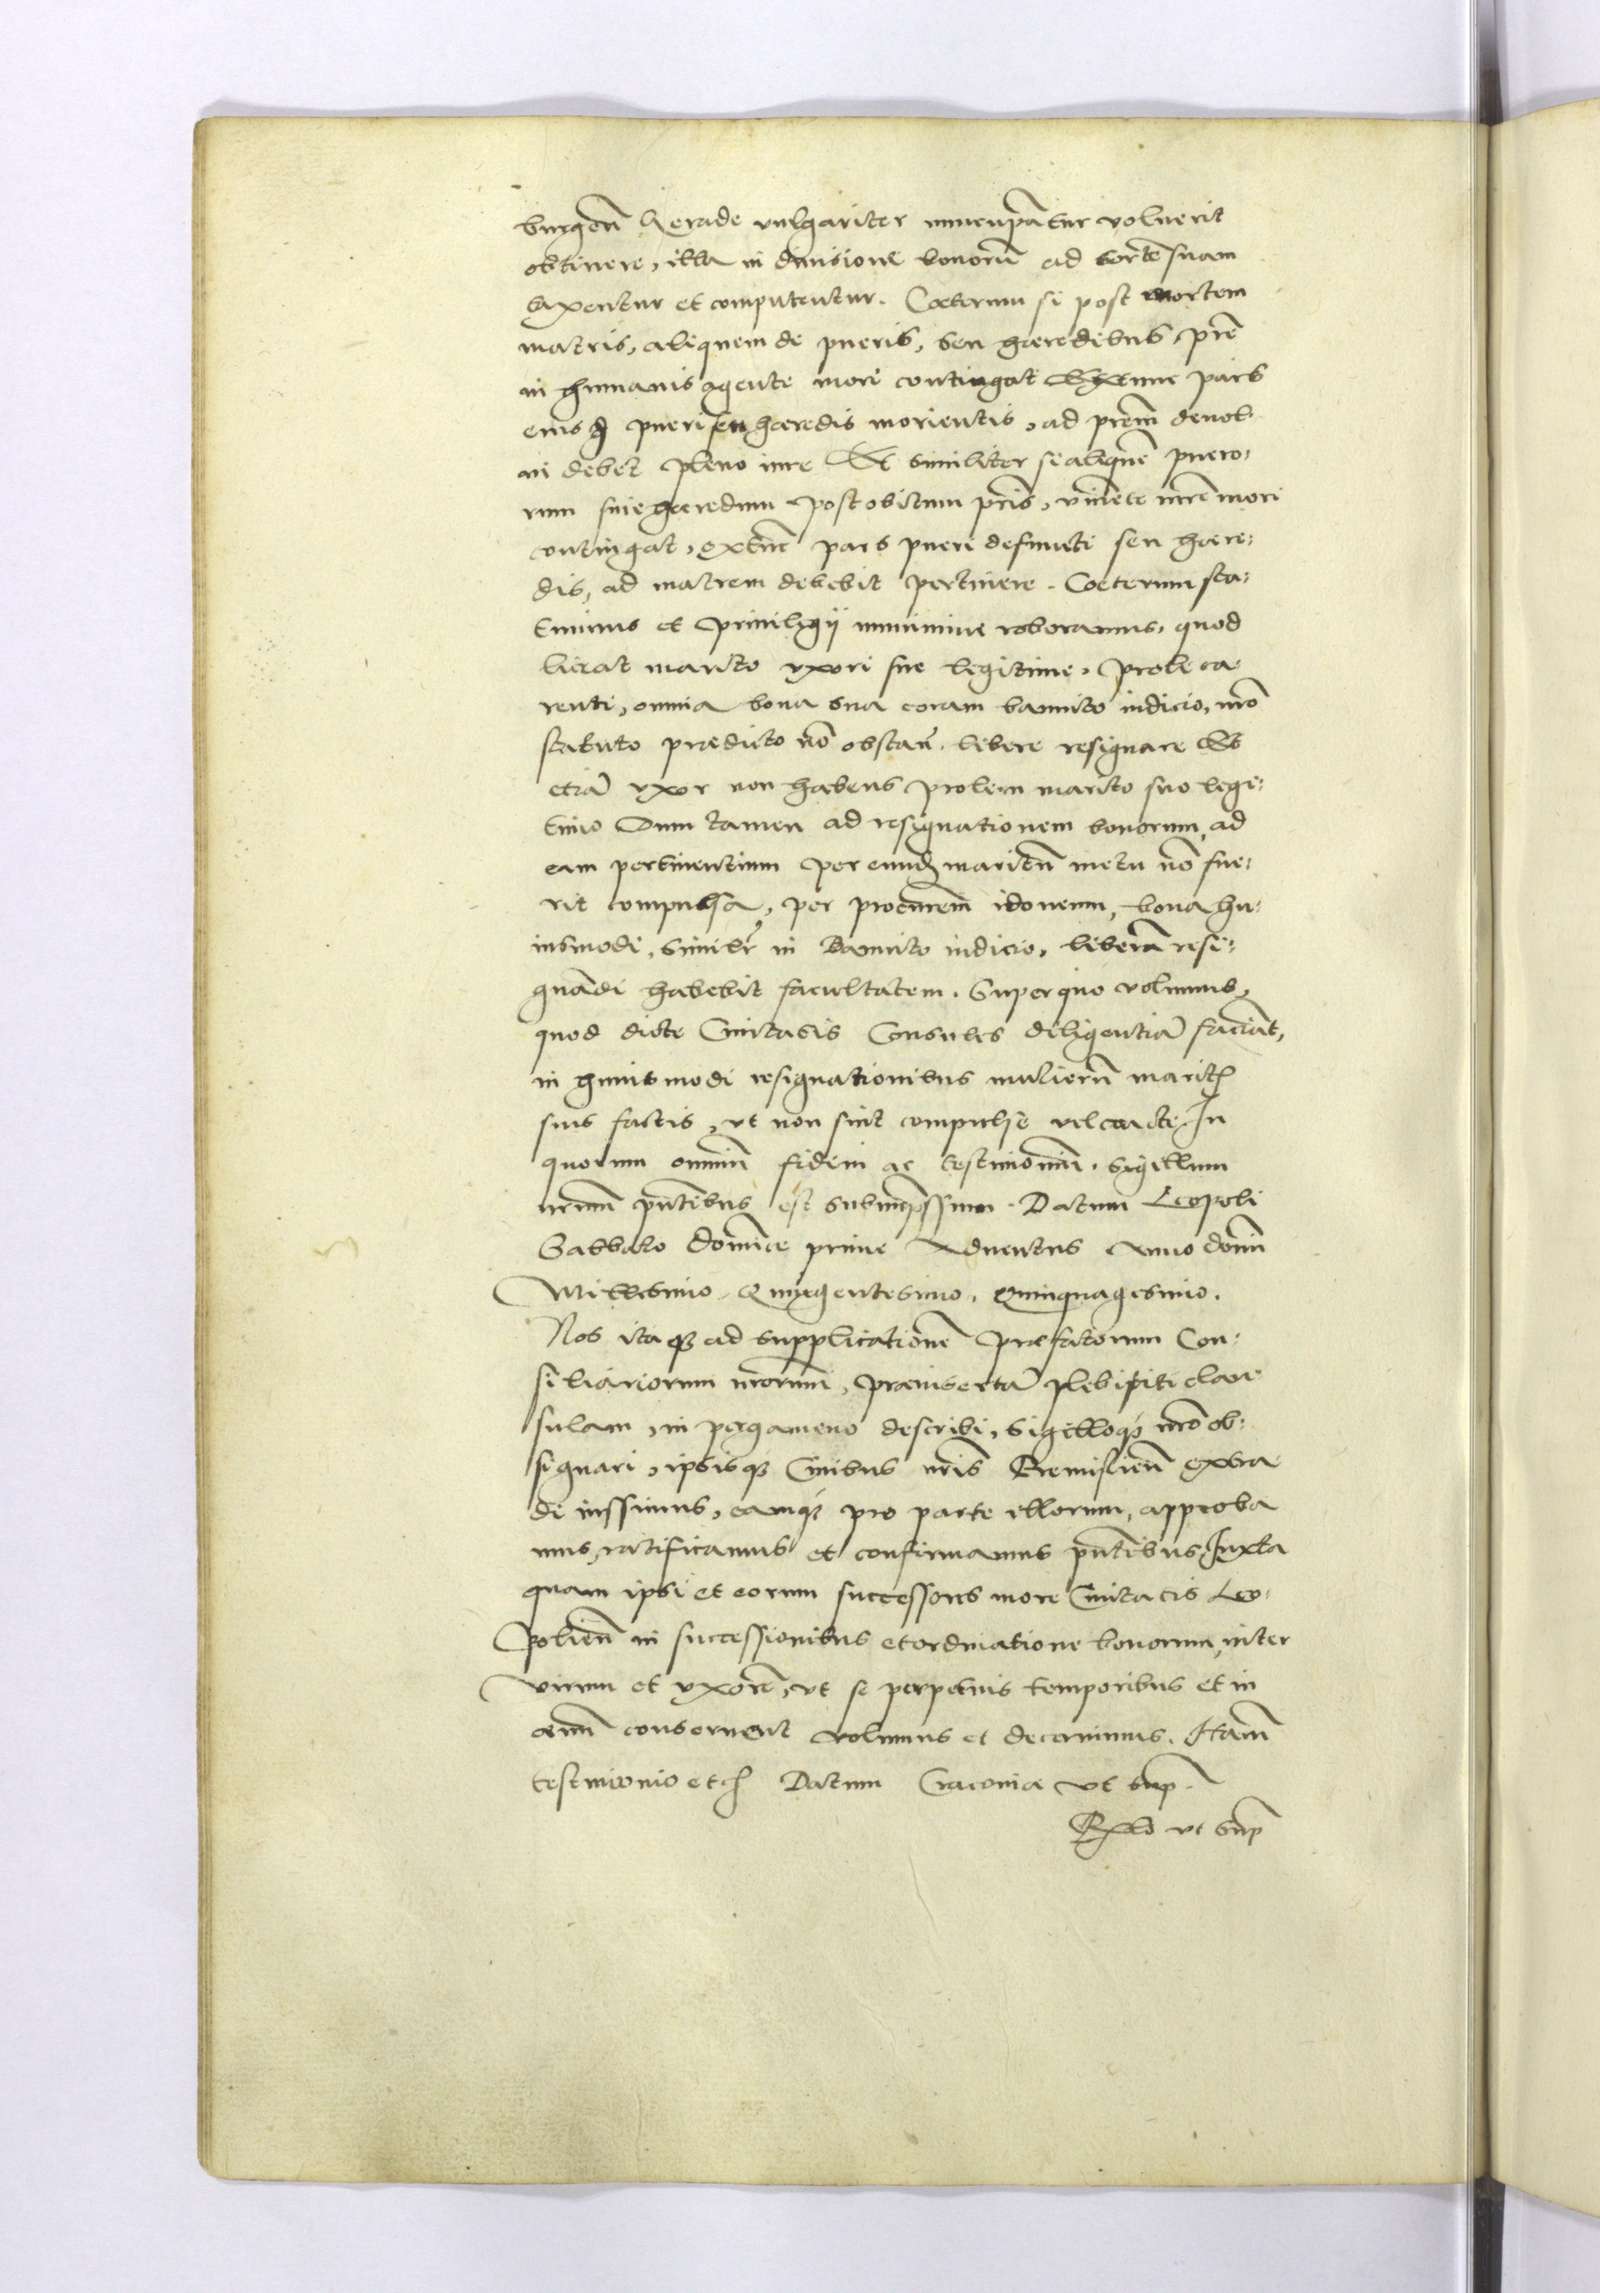 burgeñ Gerade vulgariter nuncupãtur voluerit
obtinere, illa in diuisione bonorũ ad sortẽ suam
taxentur et computentur. Cæterum si post mortem
matris, aliquem de pueris, seu hæredibus, prẽ
in humanis agente mori contingat extunc pars
pueri seu hæredis morientis, ad prẽm deuol
ui debet pleno iure Et similiter si aliquẽ puero:
rum siue hæredum post obitum pris, viuẽte mrẽ mori
contingat, extũc pars pueri defuncti seu hære:
dis, ad matrem debebit pertinere. Cæterum sta:
tuimus et priuilegij munimine roboramus, quod
liceat marito vxori sue legitime, prole ca
renti, omnia bona sua coram bannito iudicio, nrõ
statuto prædicto nõ obstañ. libere resignare Et
etiã vxor non habens prolem marito suo legi:
timo Dum tamen ad resignationem bonorum, ad
eam pertinentium per eundẽ maritũ metu nõ fue:
rit compulsa, per procurẽm idoneum, bona hu:
iusmodi, similr in bannito iudicio, liberã resi:
gnãdi habebit facultatem. Super quo volumus,
quod dicte Ciuitatis Consules diligentiã faciãt,
in huiusmodi resignationibus mulierũ maritis
suis factis, vt non sint compulse vel coacte In
quorum omniũ fidem ac testimoniũ. Sigillum
nrum pntibus est subimpressum. Datum Leopoli
Sabbato Dominice prime Aduentus Anno domini
Millesimo. Quingentesimo. Quinquagesimo.
Nos itaq3 ad supplicationẽ præfatorum Con:
siliariorum nrorum, præinsertã plebisciti clau
sulam, in pergameno describi, sigilloq3 nrõ ob:
signari, ipsisq3 Ciuibus nris Premislieñ extra
di iussimus, eamq3 pro parte illorum, approba
mus, ratificamus et confirmamus pntibus, Iuxta
quam ipsi et eorum successores more Ciuitatis Leo:
polieñ in successionibus et ordinatione bonorum, inter
virum et vxorẽ, vt se perpetuis temporibus et in
æuum conseruent volumus et decernimus. Harũ
testimonio etc Datum Cracoviæ vt sup.
Rxlo vt sup